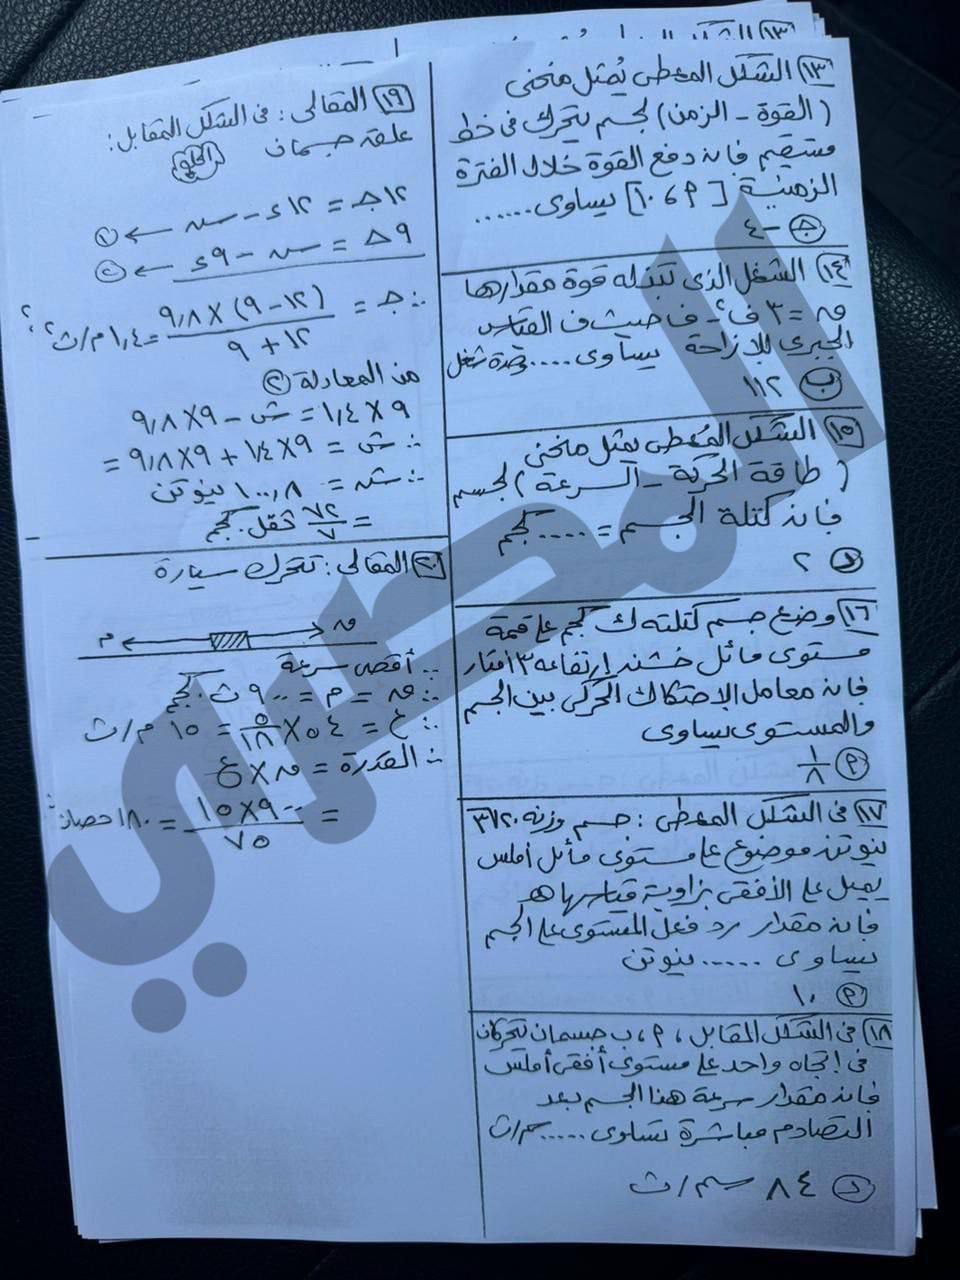 ١٣ الشكل المعطى يُمثل منحنى
(القوة - الزمن) لجسم يتحرك فى خط
مستقيم فإن دفع القوة خلال الفترة
الزمنية [٦، ١٠] يساوى ......
جـ -٤
١٤ الشغل الذى تبذله قوة مقدارها
ف حيث ف القياس
الجبرى للإزاحة يساوى .... وحدة شغل
ب ١١٢
١٥ الشكل المُعطى يمثل منحنى
(طاقة الحركة - السرعة) لجسم
فإن كتلة الجسم = .... كجم
د ٢
١٦ وضع جسم كتلته ك كجم على قمة
مستوى مائل خشن ارتفاعه ٣ أمتار
فإن معامل الاحتكاك الحركى بين الجسم
والمستوى يساوى
أ ١/٨
١٧ فى الشكل المعطى: جسم وزنه
نيوتن موضوع على مستوى مائل أملس
يميل على الأفقى بزاوية قياسها هـ
فإن مقدار رد فعل المستوى على الجسم
يساوى ...... نيوتن
أ ١٠
١٨ فى الشكل المقابل، أ، ب جسمان يتحركان
فى اتجاه واحد على مستوى أفقى أملس
فإن مقدار سرعة هذا الجسم بعد
التصادم مباشرة تساوى ..... سم/ث
د ٨٤ سم/ث
١٩ المقالى: فى الشكل المقابل:
علقه جسمان
الحل
١٢جـ = ١٢ء - ش ← ①
٩جـ = ش - ٩ء ← ②
∴ جـ = (١٢ - ٩) × ٩,٨ / ١٢ + ٩ = ١,٤ م/ث٢
من المعادلة ②
٩ × ١,٤ = ش - ٩ × ٩,٨
∴ ش = ٩ × ١,٤ + ٩ × ٩,٨ =
∴ ش = ١٠٠,٨ نيوتن
= ٧٢/٧ ثقل.كجم
٢٠ المقالى: تتحرك سيارة
م ق
∵ أقصى سرعة
∴ ق = م = ٩٠٠ ث.كجم
∴ ع = ٥٤ × ٥/١٨ = ١٥ م/ث
∴ القدرة = ق × ع
= ٩٠٠ × ١٥ / ٧٥ = ١٨٠ حصان
المصري